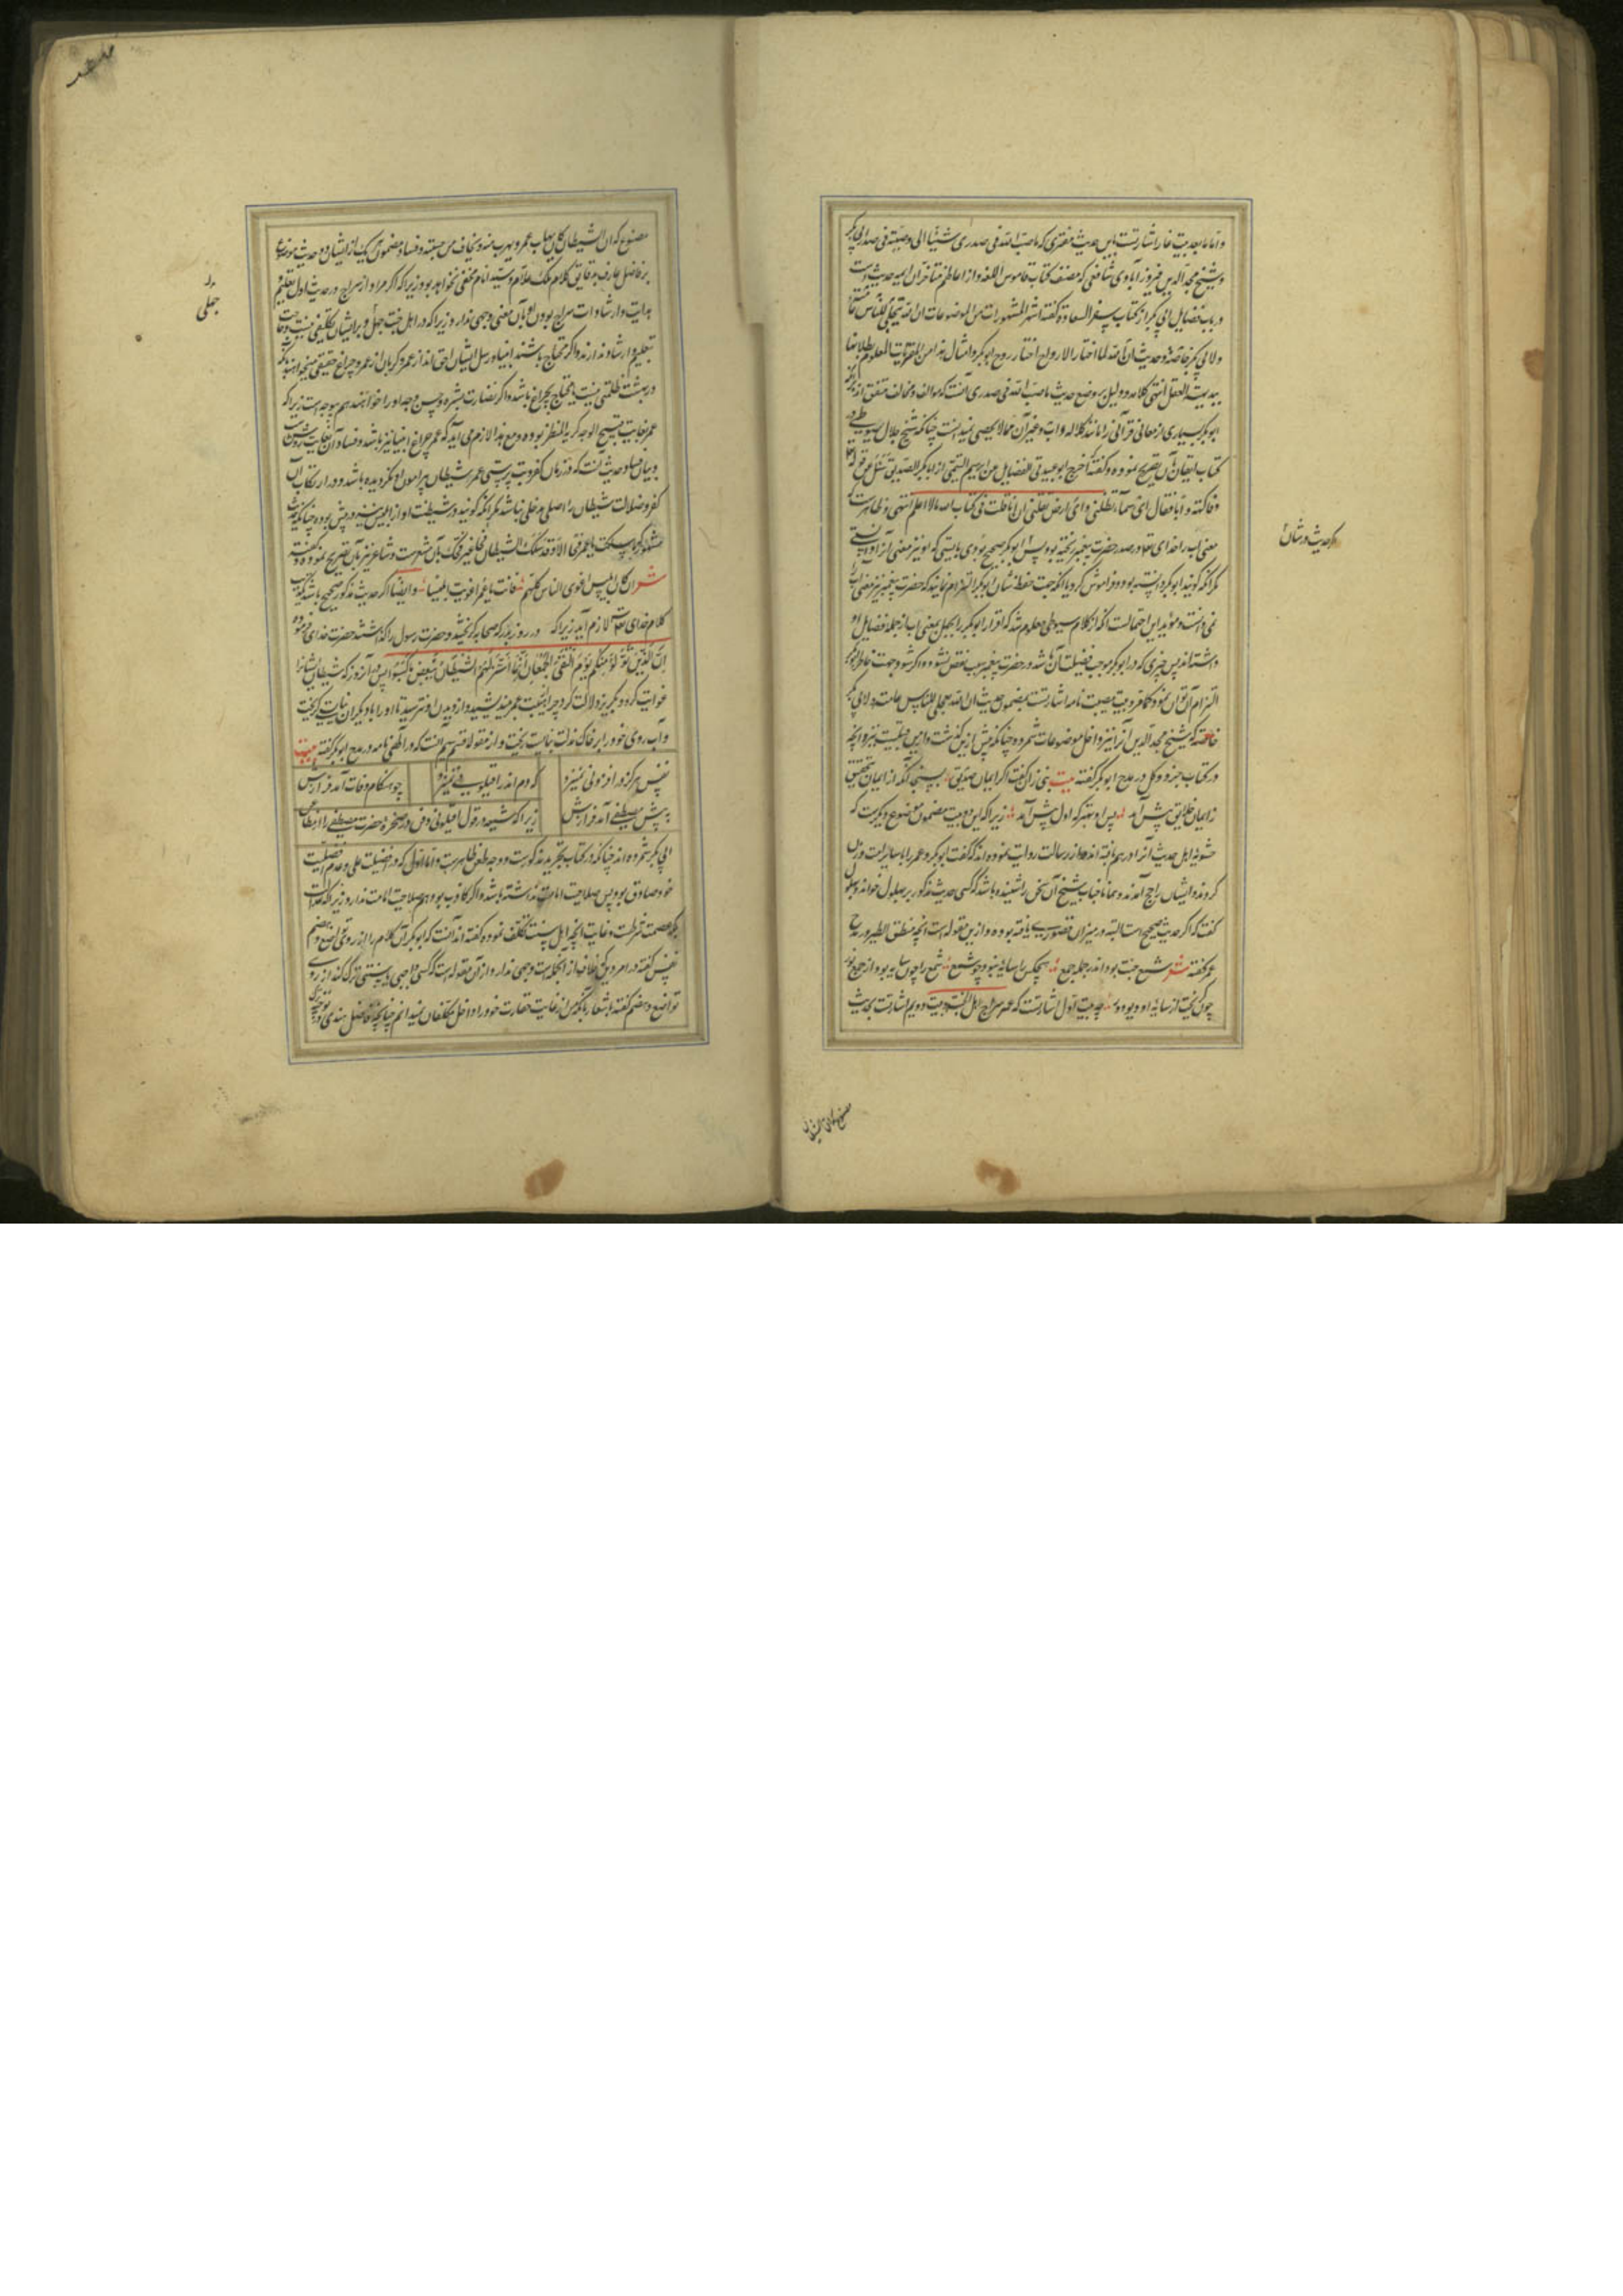 و اما ما بعد بیت غار اشارتست باین حدیث مفتری که ما صب الله فی صدری شیئا الا و صببته فی صدر ابی بکر
و شیخ مجد الدین فیروزآبادی شافعی که مصنف کتاب قاموس اللغه و از اعاظم متأخران اهل حدیث است
در باب فضایل ابی بکر از کتاب سفر السعاده گفته اشهر المشهورات من الموضوعات ان الله یتجلی للناس عامة
و لابی بکر خاصة و حدیث ان الله لما اختار الارواح اختار روح ابوبکر و امثال هذا من المفتریات المعلوم بطلانها
ببدیهة العقل انتهی کلامه و دلیل بر وضع حدیث ما صب الله فی صدری آنست که مؤالف و مخالف متفق اند که
ابوبکر بسیاری از معانی قرآنی را مانند کلاله و اب و غیر آن مما لا یحصی نمیدانست چنانکه شیخ جلال سیوطی در
کتاب اتقان آن تصریح نموده و گفته اخرج ابو عبید فی الفضایل عن ابراهیم التیمی ان ابابکر الصدیق سئل عن قوله تعالی
و فاکهة و ابا فقال ای سماء تظلنی و ای ارض تقلنی ان انا قلت فی کتاب الله ما لا اعلم انتهی و ظاهرست که
معنی اب را خدای تعالی در صدر حضرت پیغمبر ریخته بود پس اگر صحیح بودی بایستی که او نیز معنی آنرا دانستی
مگر آنکه گویند ابوبکر دانسته بود و فراموش کرد یا آنکه جهت حفظ شان ابوبکر التزام نمایند که حضرت پیغمبر نیز معنی اب را
نمی دانست و مؤید این احتمالست آنکه از کلام سیوطی معلوم شد که اقرار ابوبکر را بجهل بمعنی اب از جمله فضایل او
داشته اند پس چیزی که در ابوبکر موجب فضیلت آن باشد در حضرت پیغمبر سبب نقص نشود و اگر شود جهت خاطر ابوبکر
التزام آن توان نمود کما مر و بیت مصیبت نامه اشارتست بمضمون حدیث ان الله یتجلی للناس عامة و لابی بکر
خاصة که شیخ مجد الدین آنرا نیز داخل موضوعات شمرده چنانکه پیش ازین گذشت و ازین قبیلست نیز آنچه
در کتاب جز و کل در مدح ابوبکر گفته بیت نبی زان گفت اگر ایمان صدیق بسنجد آنکه از ایمان تحقیق
ز ایمان خلایق پیش آمد پس او بهتر که اول پیش آمد زیرا که این دو بیت مضمون موضوع دیگریست که
حشویه اهل حدیث آنرا در هم بافته اند و از رسالت روایت نموده اند که گفت ابوبکر و عمر را با سایر امت وزن
کردند و ایشان راجح آمدند و همانا جناب شیخ آن سخن را نشنیده باشد که کسی حدیث مذکور بر بهلول خواند و بهلول
گفت که اگر حدیث صحیح است البته در میزان قصوری یافته بوده و ازین مقوله است آنچه منطق الطیر در مدح
عمر گفته شعر شمع جنت بود اندر جمله جمع هیچکس را سایه نبود چو شمع شمع را چون سایه بود از جمع نور
چون گریخت از سایه او دیو دور چه بیت اول اشارتست که عمر سراج اهل الجنة و بیت دویم اشارتست بحدیث
که حدیث در شان
مصنوع که ان الشیطان کان یهاب عمر و یهرب منه و یخاف من حسیته و فساد مضمون هر یک از ایشان دو حدیث موضوع
بر فاضل عارف بدقایق کلام ملک علام و سید انام مخفی نخواهد بود زیرا که اگر مراد از سراج در حدیث اول تعلیم
هدایت و ارشادات سراج بودن او بآن معنی وجهی ندارد زیرا که در اهل جنت جهل و بر ایشان تکلیفی نیست و حاجت
بتعلیم و ارشاد ندارند و اگر محتاج باشند انبیا و رسل ایشان احق اند از عمر و گر بان از عمر و چراغ حقیقی میخواهند باز
در بهشت ظلمتی نیست تا محتاج بچراغ باشد و اگر نضارت بشره و حسن وجه او را خواهند هم بیوجه است زیرا که
عمر بغایت قبیح الوجه کریه المنظر بوده و مع هذا لازم می آید که عمر چراغ انبیا نیز باشد و فساد آن بغایت روشن است
و بیان فساد حدیث آنست که در زمان کفر و بت پرستی عمر شیطان پیرامون او نگردیده باشد و در ارتکاب آن
کفر و ضلالت شیطان را اصلی مدخلی نباشد مگر آنکه گویند در شیطنت او از ابلیس نیز در پیش بوده چنانکه حدیث
مشهور که ما سلکت یا عمر فجا الا و قد سلک الشیطان فجا غیر فجک بآن مشعرست و شاعر نیز بآن تصریح نموده و گفته
شعر ان کان ابلیس اغوی الناس کلهم فانت یا عمر اغویت ابلیسا و ایضا اگر حدیث مذکور صحیح باشد تکذیب
کلام خدای تعالی لازم آید زیرا که در روزی که صحابه گریختند و حضرت رسول را گذاشتند حضرت خدای فرموده
اِنَّ الَّذِینَ تَوَلَّوْا مِنْکُمْ یَوْمَ الْتَقَی الْجَمْعَانِ اِنَّمَا اسْتَزَلَّهُمُ الشَّیْطَانُ بِبَعْضِ مَا کَسَبُوا پس در آن روز که شیطان ایشانرا
غوایت کرده و بگریز دلالت کرد چرا از هیبت عمر نیندیشید و از دیدن او نترسید تا او را با دیگران نبایست گریخت
و آب روی خود را بر خاک مذلت نبایست ریخت و از مقوله قسم سیم آنست که در الهی نامه در مدح ابوبکر گفته بیت
نفس هرگز در افزونی نمیزد که دم اندر اقیلونی نمیزد چو هنگام وفات آمد فرازش
پیش مصطفی آمد فرازش زیرا که شیعه قول اقیلونی و دفن در حجره حضرت مصطفی را از مطاعن
ابی بکر شمرده اند چنانکه در کتاب تجرید مذکورست و وجه طعن ظاهرست و اما اول که در افضلیت علی و عدم افضلیت
خود صادق بود پس صلاحیت امامت نداشته باشد و اگر کاذب بود هم صلاحیت امامت ندارد زیرا که عدالت
بلکه عصمت شرطست و غایت آنچه اهل سنت تکلف نموده گفته اند آنست که ابوبکر آن کلام را از روی تواضع و هضم
نفس گفته در امر دین خلاف از آنجمله است وجهی ندارد و از آن مقوله است که کسی واجبی یا سنتی ترک کند از روی
تواضع و هضم گفته باشد تا آنکه من از غایت حقارت خود را داخل مکلفان نمیدانم چنانچه فاضل هندی در توجیه
جهلی